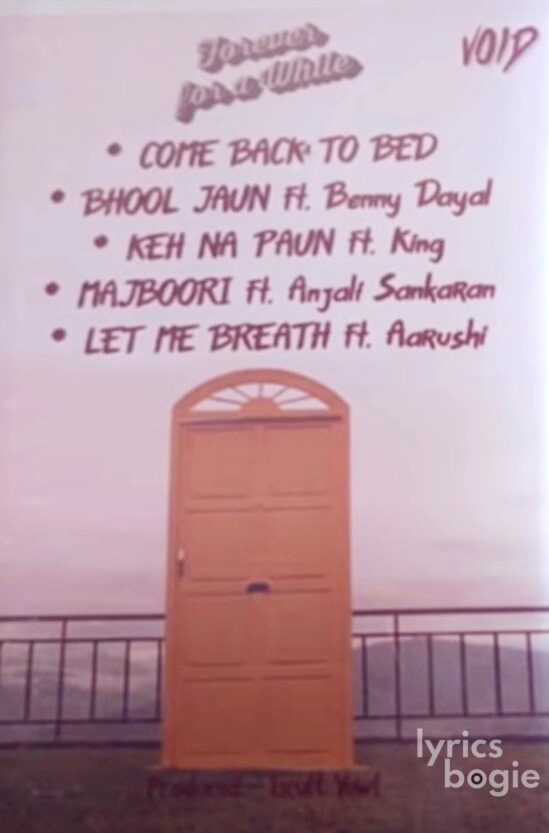 Forever
for a While
VOID
• COME BACK TO BED
• BHOOL JAUN Ft. Benny Dayal
• KEH NA PAUN Ft. King
• MAJBOORI Ft. Anjali Sankaran
• LET ME BREATH Ft. Aarushi
Produced -
lyrics
bogie